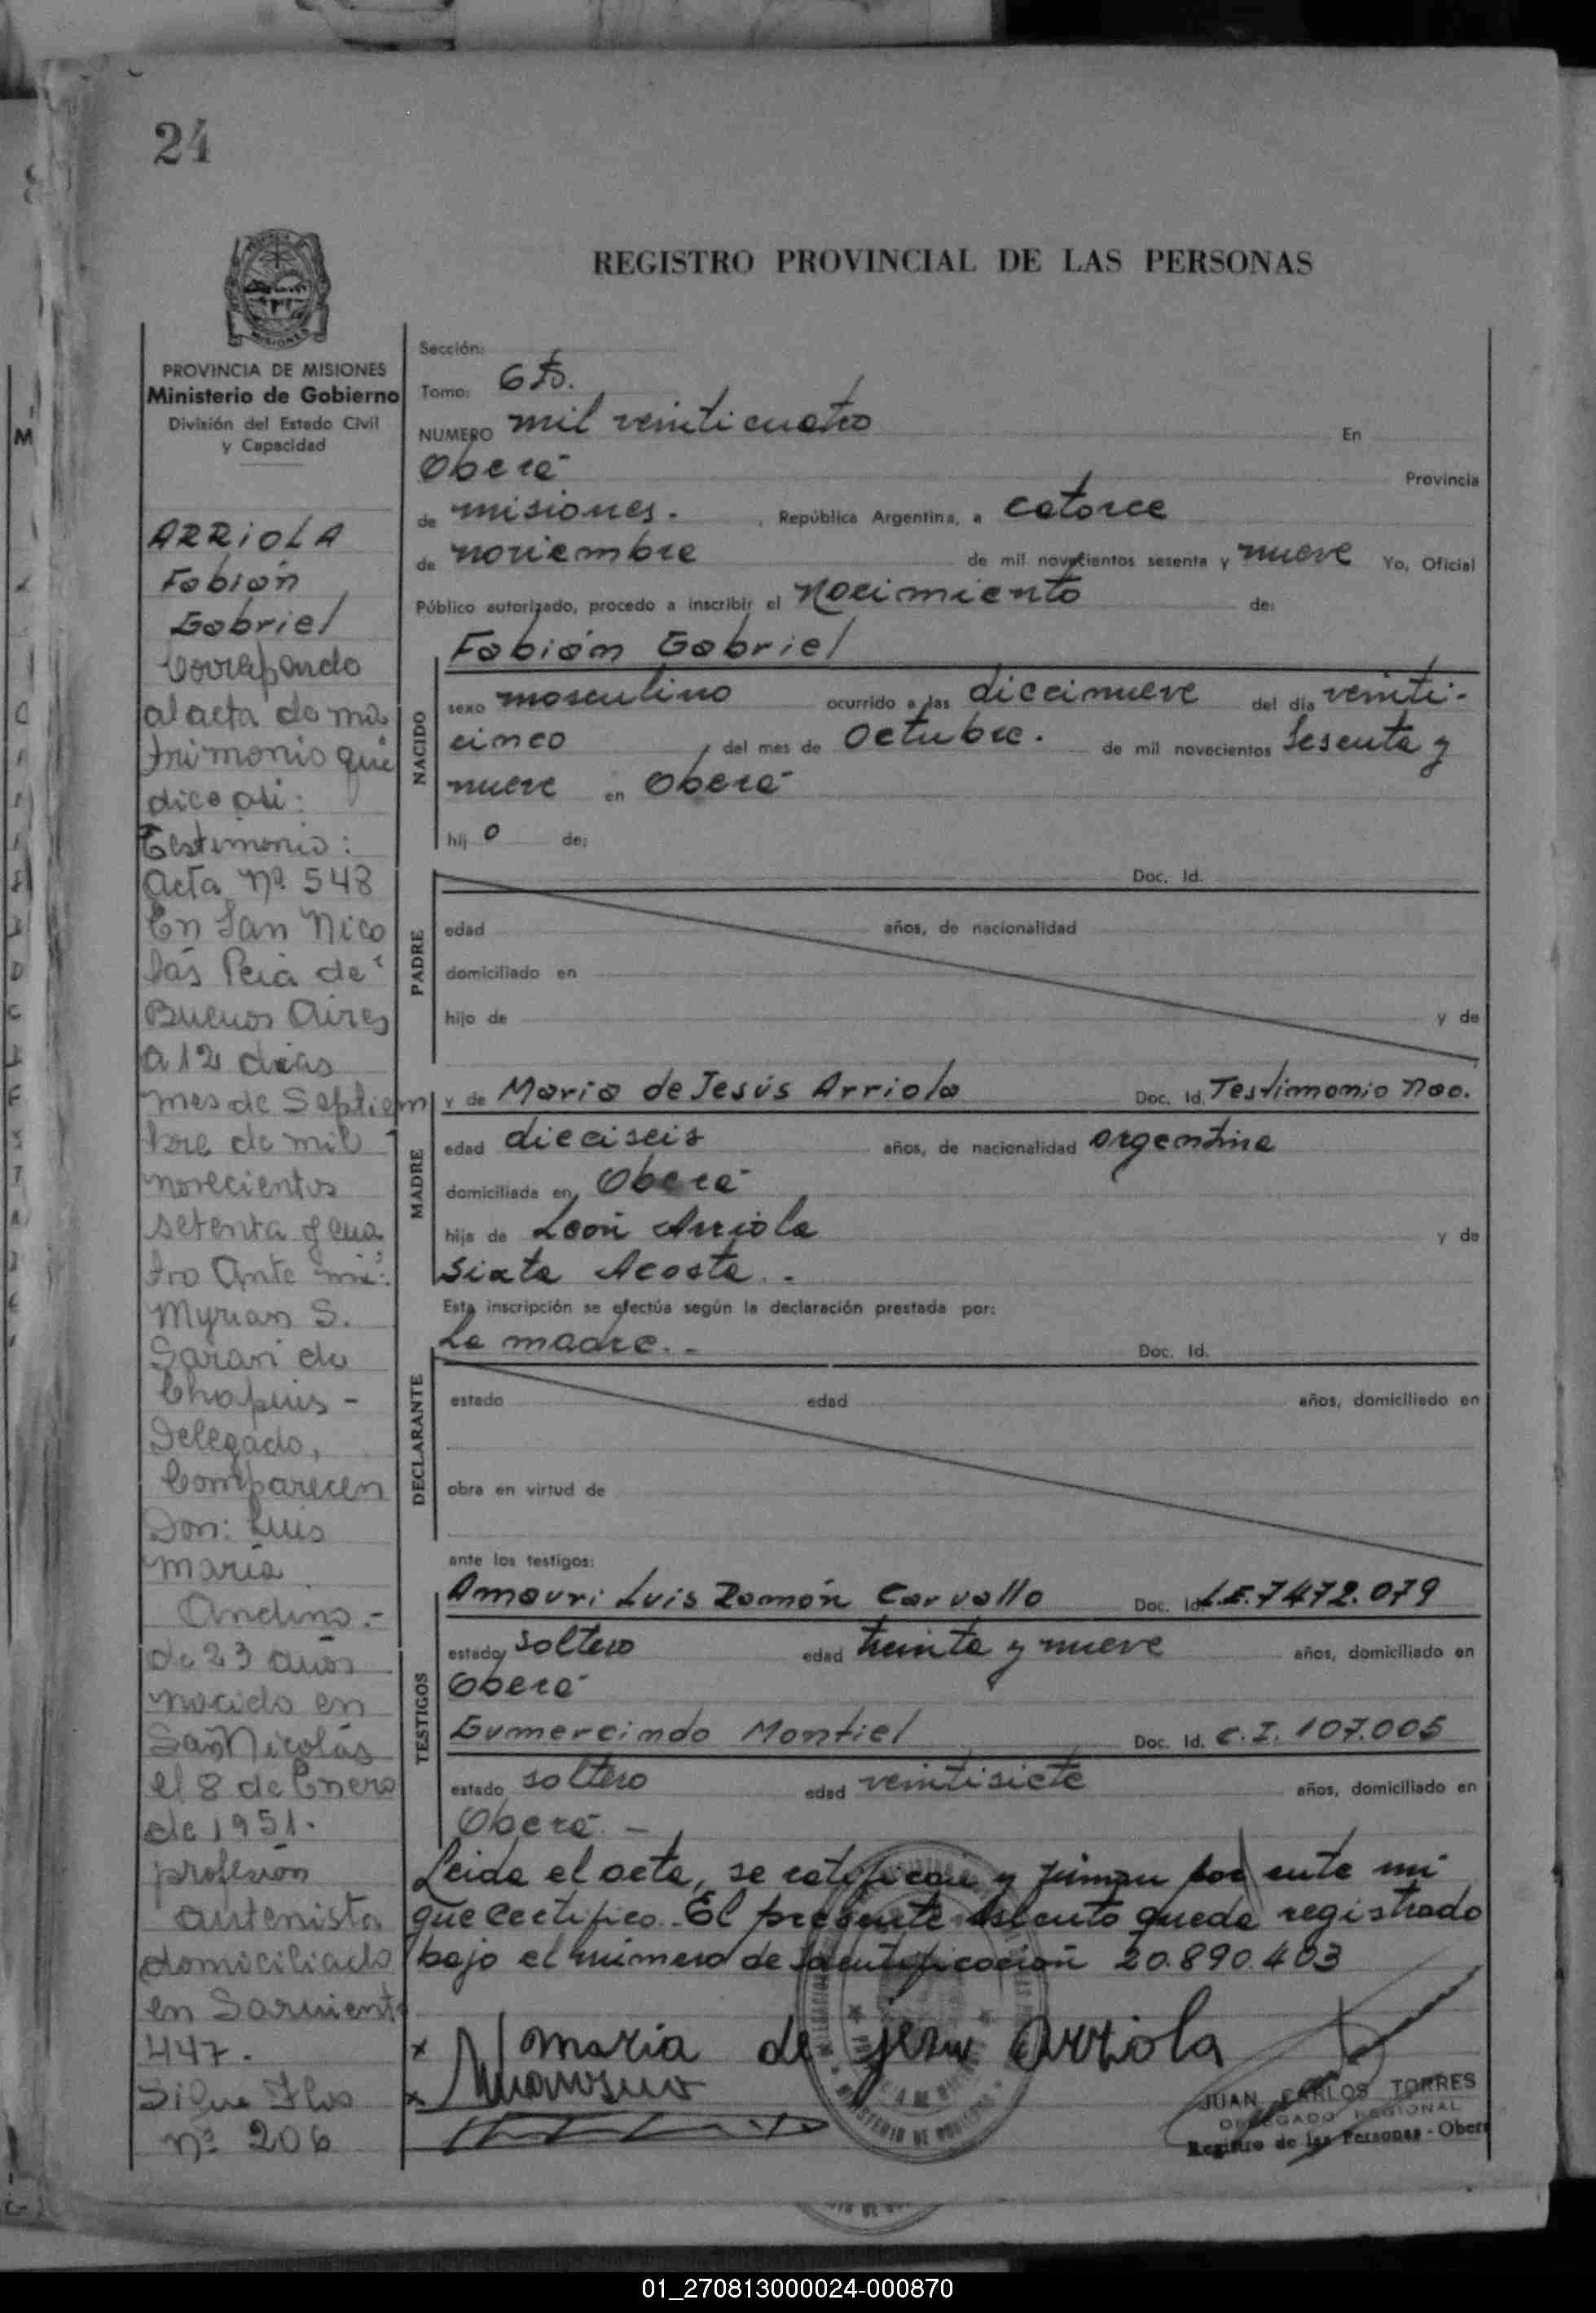 24
REGISTRO PROVINCIAL DE LAS PERSONAS
PROVINCIA DE MISIONES
Ministerio de Gobierno
División del Estado Civil
y Capacidad
ARRIOLA
Fabián
Gabriel
al acta de ma
trimonio que
dice asi:
Testimonio:
Acta Nº 548
En San Nico
lás Pcia de
Buenos Aires
a 12 dias
mes de Septiem
bre de mil
novecientos
setenta y cua
tro Ante mi:
Myrian S.
Sarari de
Chapuis -
Delegado,
Comparecen
Don: Luis
María
Andino.-
de 23 años
nacido en
San Nicolás
el 8 de Enero
de 1951.
profesión
domiciliado
en Sarmiento
447.
Sigue Flio
nº 206
Sección:
Tomo: 6to.
NUMERO mil veinticuatro En
Oberá Provincia
de misiones. , República Argentina, a catorce
de noviembre de mil novecientos sesenta y nueve Yo, Oficial
Público autorizado, procedo a inscribir el Nacimiento de:
NACIDO
Fabián Gabriel
sexo masculino ocurrido a las diecinueve del día veinti-
cinco , del mes de Octubre. de mil novecientos sesenta y
nueve en Oberá
hij o de:
PADRE
Doc. Id.
edad años, de nacionalidad
domiciliado en
hijo de y de
MADRE
y de Maria de Jesús Arriola Doc. Id. Testimonio Nac.
edad dieciseis años, de nacionalidad argentina
domiciliada en Oberá
hija de León Arriola y de
Sixta Acosta. -
Esta inscripción se efectúa según la declaración prestada por:
DECLARANTE
La madre. - Doc. Id.
estado edad años, domiciliado en
obra en virtud de
ante los testigos:
TESTIGOS
Amauri Luis Ramón Carvallo Doc. Id. L.E. 7472.079
estado soltero edad treinta y nueve años, domiciliado en
Oberá
Gumercindo Montiel Doc. Id. C.I. 107.005
estado soltero edad veintisiete años, domiciliado en
Oberá -
Leida el acta, se ratifican y firman por ante mi
que certifico. El presente asiento queda registrado
bajo el número de identificación 20.890.403
x maria de jesu Arriola
x
JUAN CARLOS TORRES
DELEGADO REGIONAL
Registro de las Personas - Oberá
01_270813000024-000870